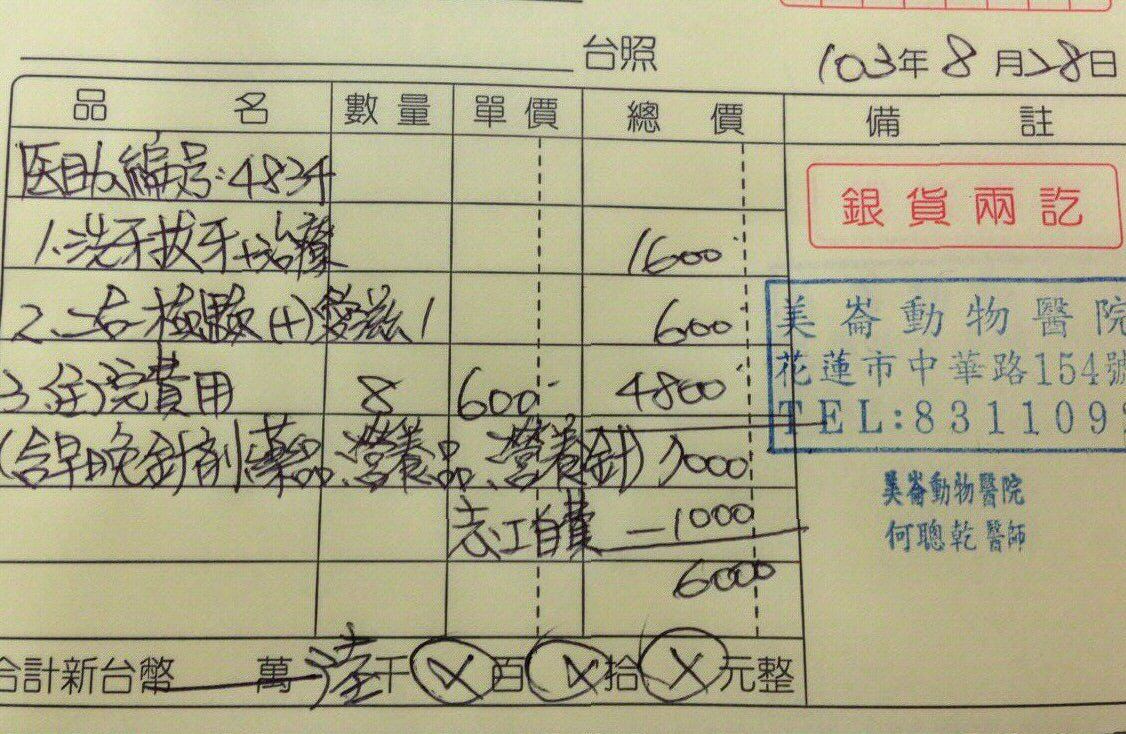 台照 103年8月28日
品名 數量 單價 總價 備註
医助編号:4834
銀貨兩訖
1.洗牙拔牙+治療 1600
2.二合一檢驗(+)愛滋1 600
美崙動物醫院
花蓮市中華路154號
3.住院費用 8 600 4800
TEL:8311092
(含早晚針劑藥品、營養品、營養針) 7000
美崙動物醫院
志工自費 -1000
何聰乾醫師
6000
合計新台幣 萬陸千X百X拾X元整